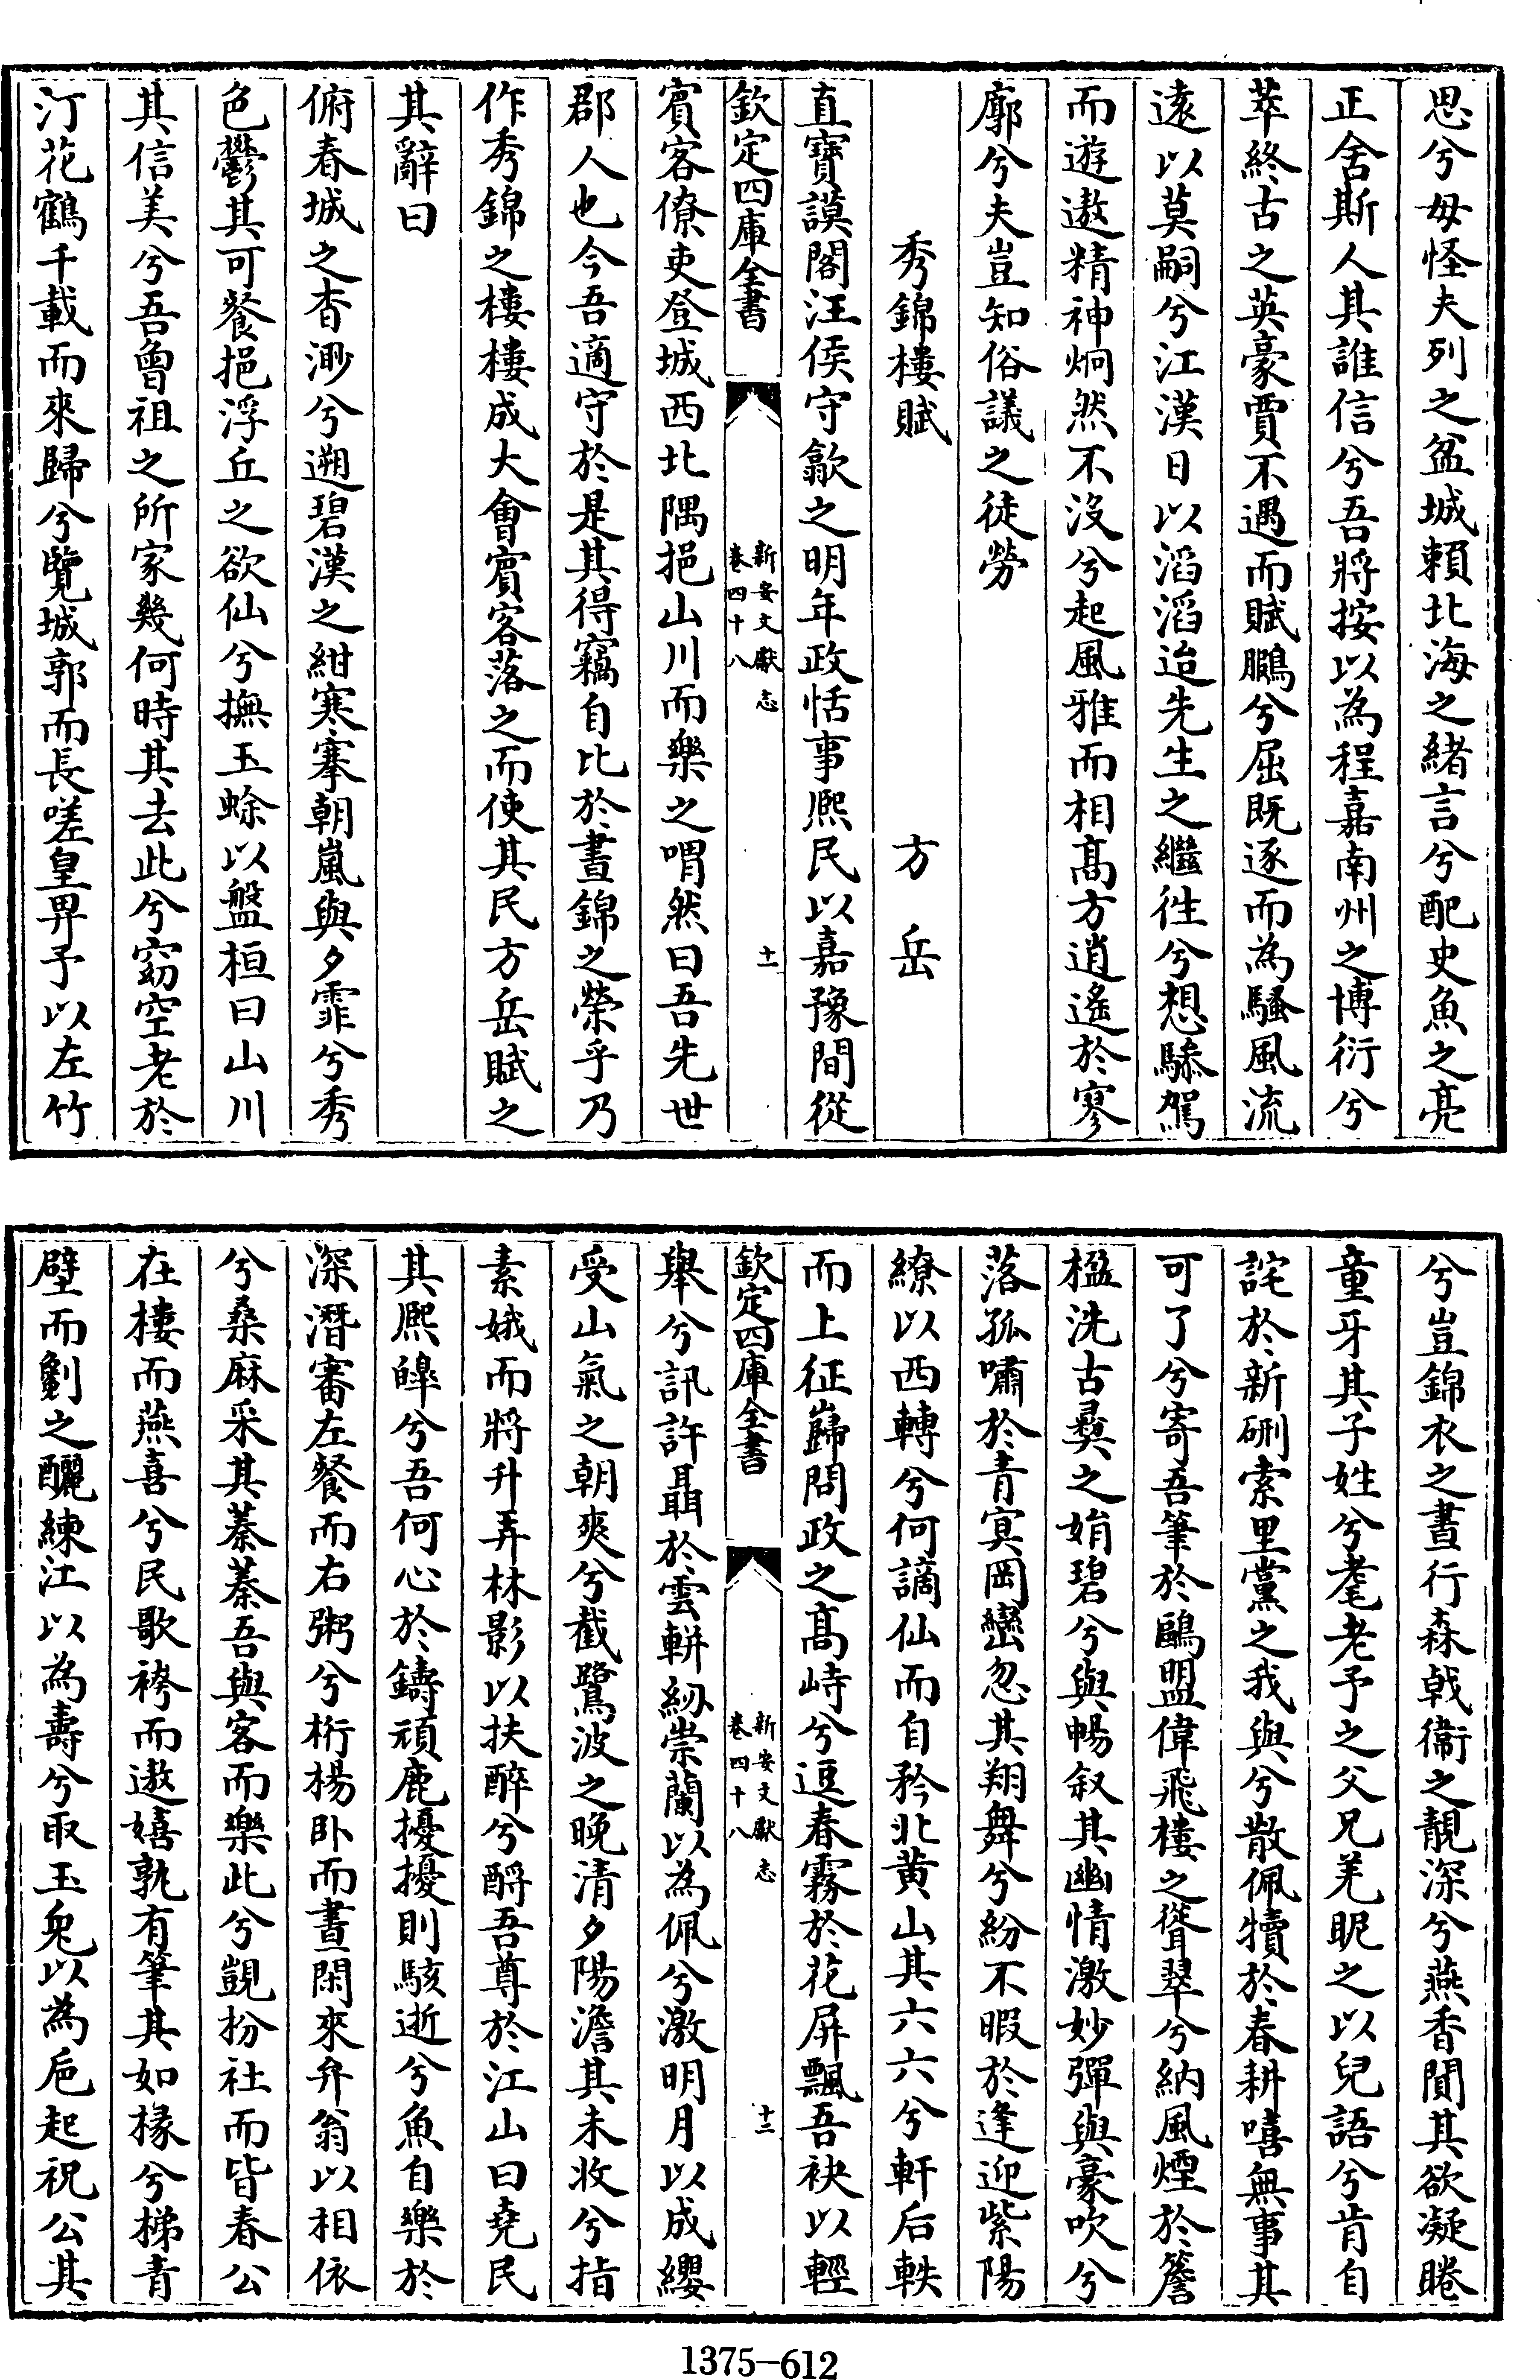 思兮毋怪夫列之盆城頼北海之緒言兮配史魚之亮
正舍斯人其誰信兮吾將按以為程嘉南州之博衍兮
萃終古之英豪賈不遇而賦鵩兮屈既逐而為騷風流
逺以莫嗣兮江漢日以滔滔迨先生之繼徃兮想驂駕
而遊遨精神炯然不沒兮起風雅而相髙方逍遙於寥
廓兮夫豈知俗議之徒勞
秀錦樓賦 方岳
直寶謨閣汪侯守歙之明年政恬事熈民以嘉豫間從
欽定四庫全書 新安文獻志 卷四十八 十一
賓客僚吏登城西北隅挹山川而樂之喟然曰吾先世
郡人也今吾適守於是其得竊自比於晝錦之榮乎乃
作秀錦之樓樓成大會賓客落之而使其民方岳賦之
其辭曰
俯春城之杳渺兮遡碧漢之紺寒搴朝嵐與夕霏兮秀
色鬱其可餐挹浮丘之欲仙兮撫玉蜍以盤桓曰山川
其信美兮吾曾祖之所家幾何時其去此兮窈空老於
汀花鶴千載而來歸兮覽城郭而長嗟皇畀予以左竹
兮豈錦衣之晝行森戟衛之靚深兮燕香閒其欲凝睠
童牙其子姓兮耄老予之父兄羌眤之以兒語兮肯自
詫於新硎索里黨之我與兮散佩犢於春耕嘻無事其
可了兮寄吾筆於鷗盟偉飛樓之聳翠兮納風煙於簷
楹洗古彞之娟碧兮與暢叙其幽情激妙彈與豪吹兮
落孤嘯於青冥岡巒忽其翔舞兮紛不暇於逢迎紫陽
繚以西轉兮何謫仙而自矜北黄山其六六兮軒后軼
而上征巋問政之髙峙兮逗春霧於花屏飄吾袂以輕
欽定四庫全書 新安文獻志 卷四十八 十二
舉兮訊許聶於雲軿紉崇蘭以為佩兮激明月以成纓
受山氣之朝爽兮截鷺波之晚清夕陽澹其未收兮指
素娥而將升弄林影以扶醉兮酹吾尊於江山曰堯民
其熈皥兮吾何心於鑄頑鹿擾擾則駭逝兮魚自樂於
深潛審左餐而右粥兮桁楊卧而晝閑來弁翁以相依
兮桑麻采其蓁蓁吾與客而樂此兮覬枌社而皆春公
在樓而燕喜兮民歌袴而遨嬉孰有筆其如椽兮梯青
壁而劖之釃練江以為壽兮取玉兔以為巵起祝公其
1375-612